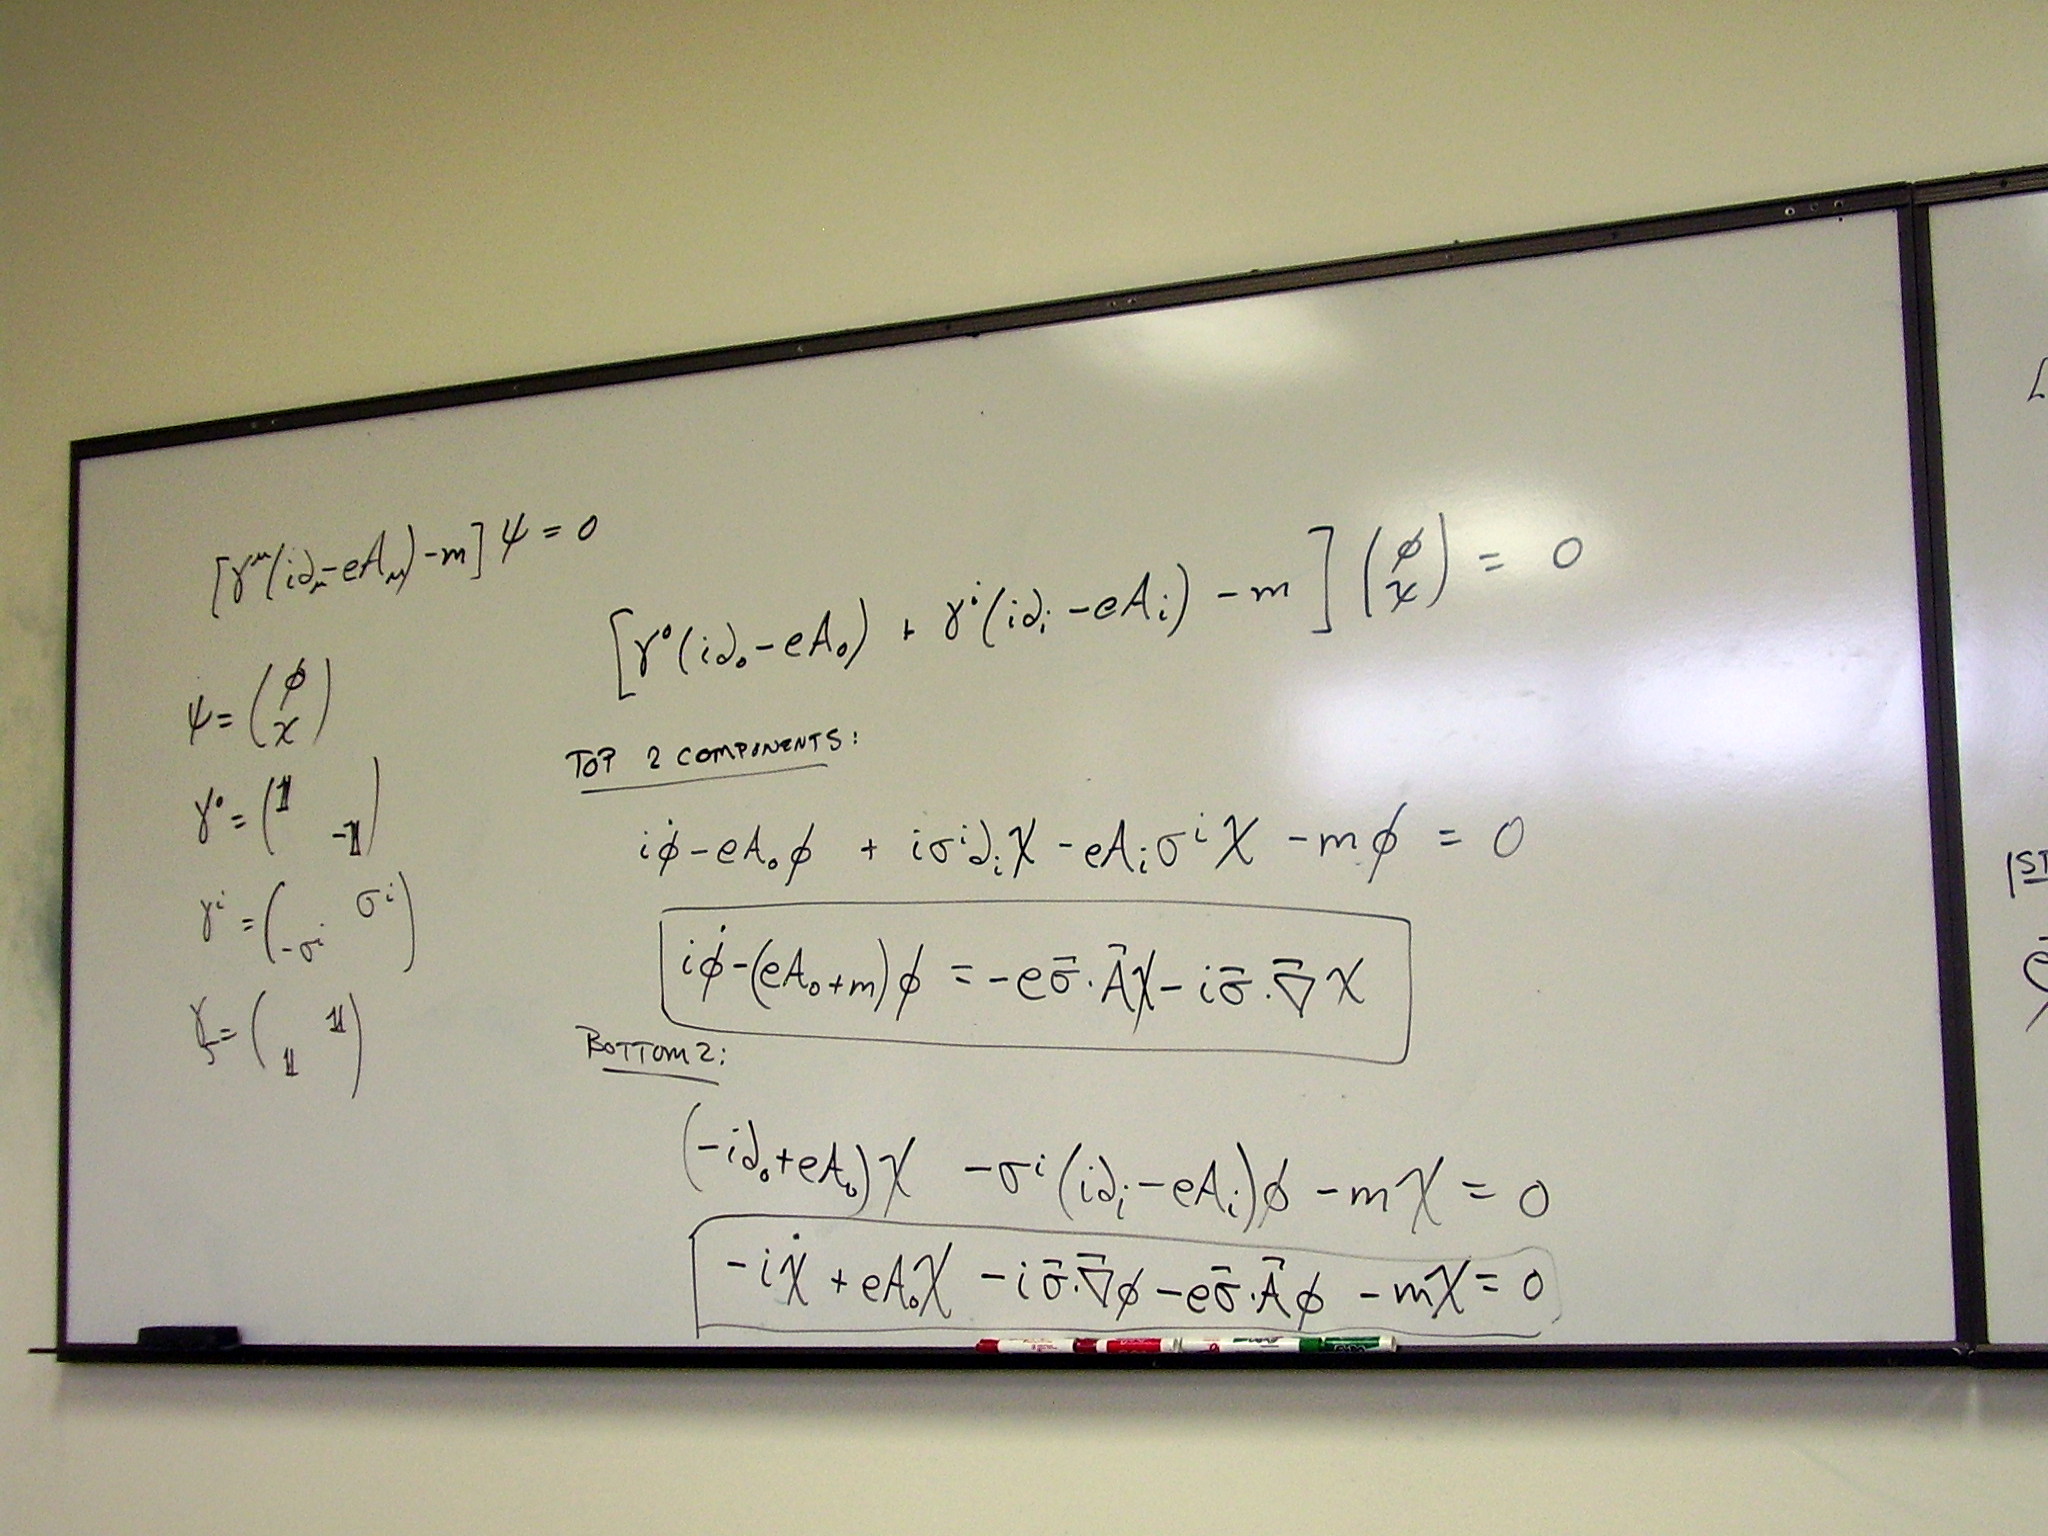 [γ^μ(i∂_μ - eA_μ) - m] ψ = 0
ψ = (φ χ)
γ^0 = (𝟙 -𝟙)
γ^i = (σ^i -σ^i)
γ_5 = (𝟙 𝟙)
[γ^0(i∂_0 - eA_0) + γ^i(i∂_i - eA_i) - m] (φ χ) = 0
TOP 2 COMPONENTS:
iφ̇ - eA_0φ + iσ^i∂_iχ - eA_iσ^iχ - mφ = 0
iφ̇ - (eA_0+m)φ = -eσ⃗·A⃗χ - iσ⃗·∇⃗χ
BOTTOM 2:
(-i∂_0+eA_0)χ - σ^i(i∂_i - eA_i)φ - mχ = 0
-iχ̇ + eA_0χ - iσ⃗·∇⃗φ - eσ⃗·A⃗φ - mχ = 0